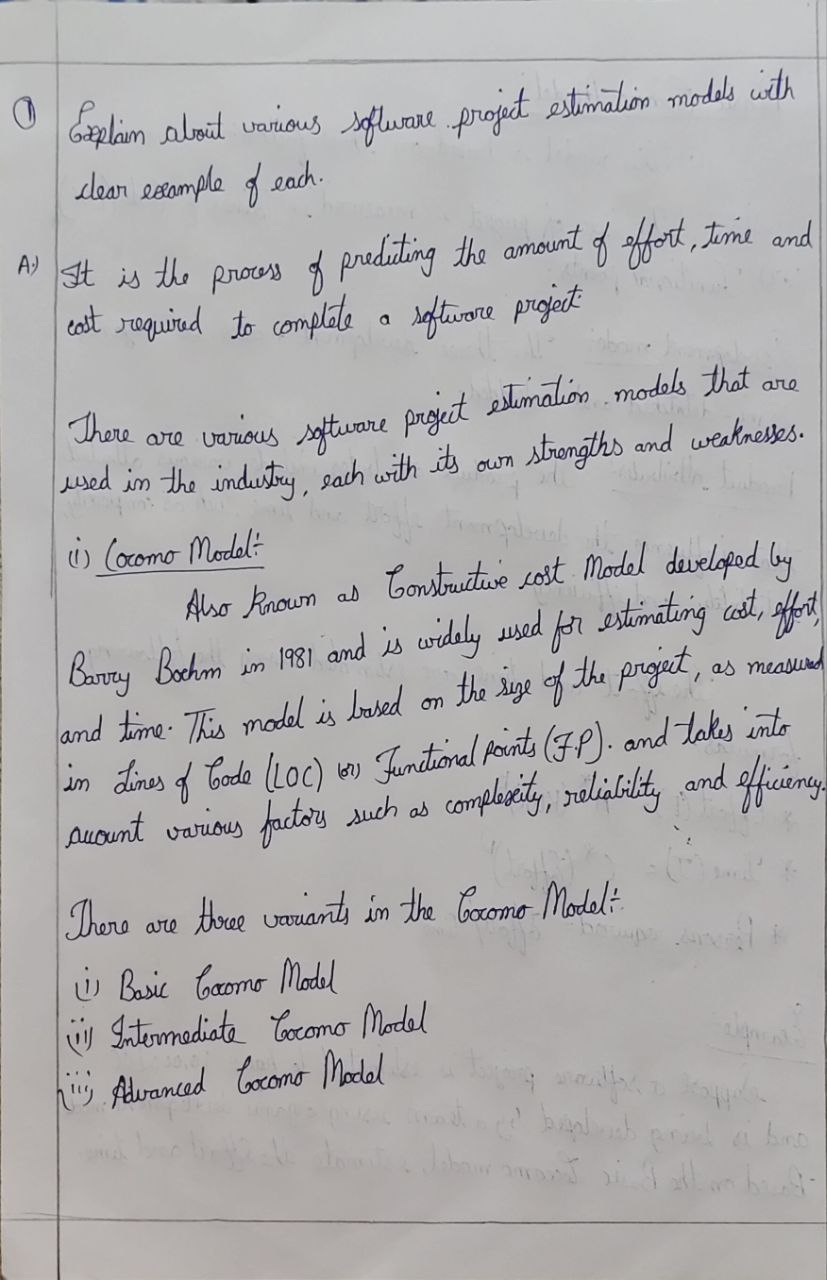 ① Explain about various software project estimation models with
clear example of each.
A:) It is the process of predicting the amount of effort, time and
cost required to complete a software project.
There are various software project estimation models that are
used in the industry, each with its own strengths and weaknesses.
(i) Cocomo Model:-
Also known as Constructive cost Model developed by
Barry Boehm in 1981 and is widely used for estimating cost, effort,
and time. This model is based on the size of the project, as measured
in Lines of Code (LOC) (or) Functional points (F.P). and takes into
account various factors such as complexity, reliability and efficiency.
There are three variants in the Cocomo Model:-
(i) Basic Cocomo Model
(ii) Intermediate Cocomo Model
(iii) Advanced Cocomo Model